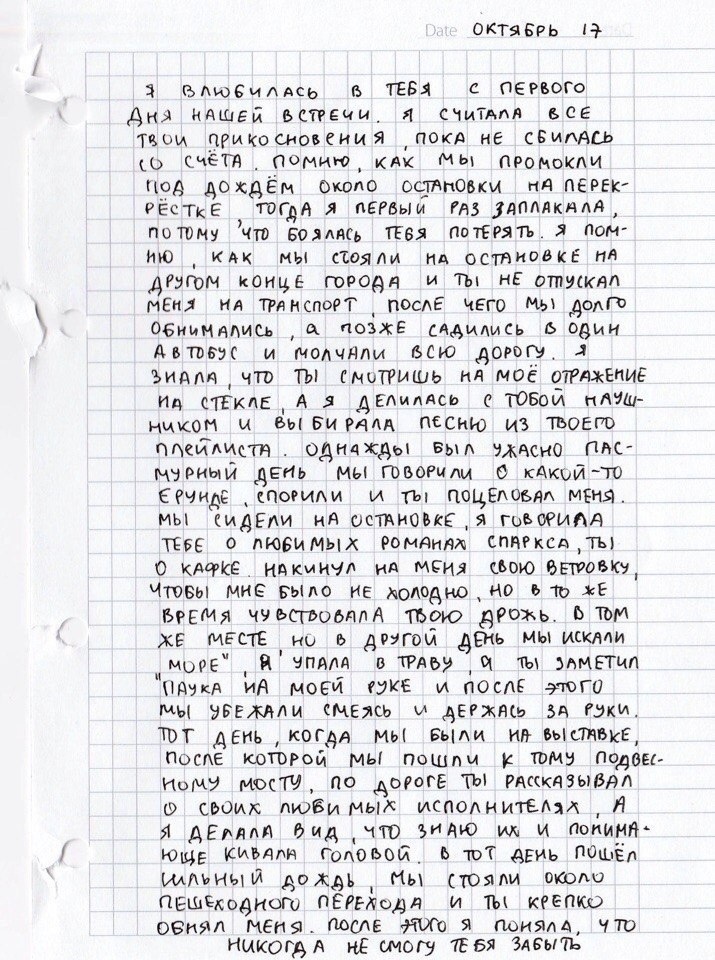 Date ОКТЯБРЬ 17
Я ВЛЮБИЛАСЬ В ТЕБЯ С ПЕРВОГО
ДНЯ НАШЕЙ ВСТРЕЧИ. Я СЧИТАЛА ВСЕ
ТВОИ ПРИКОСНОВЕНИЯ, ПОКА НЕ СБИЛАСЬ
СО СЧЁТА. ПОМНЮ, КАК МЫ ПРОМОКЛИ
ПОД ДОЖДЁМ ОКОЛО ОСТАНОВКИ НА ПЕРЕК-
РЁСТКЕ, ТОГДА Я ПЕРВЫЙ РАЗ ЗАПЛАКАЛА,
ПОТОМУ ЧТО БОЯЛАСЬ ТЕБЯ ПОТЕРЯТЬ. Я ПОМ-
НЮ, КАК МЫ СТОЯЛИ НА ОСТАНОВКЕ НА
ДРУГОМ КОНЦЕ ГОРОДА И ТЫ НЕ ОТПУСКАЛ
МЕНЯ НА ТРАНСПОРТ, ПОСЛЕ ЧЕГО МЫ ДОЛГО
ОБНИМАЛИСЬ, А ПОЗЖЕ САДИЛИСЬ В ОДИН
АВТОБУС И МОЛЧАЛИ ВСЮ ДОРОГУ. Я
ЗНАЛА, ЧТО ТЫ СМОТРИШЬ НА МОЁ ОТРАЖЕНИЕ
НА СТЕКЛЕ, А Я ДЕЛИЛАСЬ С ТОБОЙ НАУШ-
НИКОМ И ВЫБИРАЛА ПЕСНЮ ИЗ ТВОЕГО
ПЛЕЙЛИСТА. ОДНАЖДЫ БЫЛ УЖАСНО ПАС-
МУРНЫЙ ДЕНЬ МЫ ГОВОРИЛИ О КАКОЙ-ТО
ЕРУНДЕ, СПОРИЛИ И ТЫ ПОЦЕЛОВАЛ МЕНЯ.
МЫ СИДЕЛИ НА ОСТАНОВКЕ, Я ГОВОРИЛА
ТЕБЕ О ЛЮБИМЫХ РОМАНАХ СПАРКСА, ТЫ
О КАФКЕ. НАКИНУЛ НА МЕНЯ СВОЮ ВЕТРОВКУ,
ЧТОБЫ МНЕ БЫЛО НЕ ХОЛОДНО, НО В ТО ЖЕ
ВРЕМЯ ЧУВСТВОВАЛА ТВОЮ ДРОЖЬ. В ТОМ
ЖЕ МЕСТЕ НО В ДРУГОЙ ДЕНЬ МЫ ИСКАЛИ
"МОРЕ", Я УПАЛА В ТРАВУ, А ТЫ ЗАМЕТИЛ
ПАУКА НА МОЕЙ РУКЕ И ПОСЛЕ ЭТОГО
МЫ УБЕЖАЛИ СМЕЯСЬ И ДЕРЖАСЬ ЗА РУКИ.
ТОТ ДЕНЬ, КОГДА МЫ БЫЛИ НА ВЫСТАВКЕ,
ПОСЛЕ КОТОРОЙ МЫ ПОШЛИ К ТОМУ ПОДВЕС-
НОМУ МОСТУ, ПО ДОРОГЕ ТЫ РАССКАЗЫВАЛ
О СВОИХ ЛЮБИМЫХ ИСПОЛНИТЕЛЯХ, А
Я ДЕЛАЛА ВИД, ЧТО ЗНАЮ ИХ И ПОНИМА-
ЮЩЕ КИВАЛА ГОЛОВОЙ. В ТОТ ДЕНЬ ПОШЁЛ
СИЛЬНЫЙ ДОЖДЬ, МЫ СТОЯЛИ ОКОЛО
ПЕШЕХОДНОГО ПЕРЕХОДА И ТЫ КРЕПКО
ОБНЯЛ МЕНЯ. ПОСЛЕ ЭТОГО Я ПОНЯЛА, ЧТО
НИКОГДА НЕ СМОГУ ТЕБЯ ЗАБЫТЬ